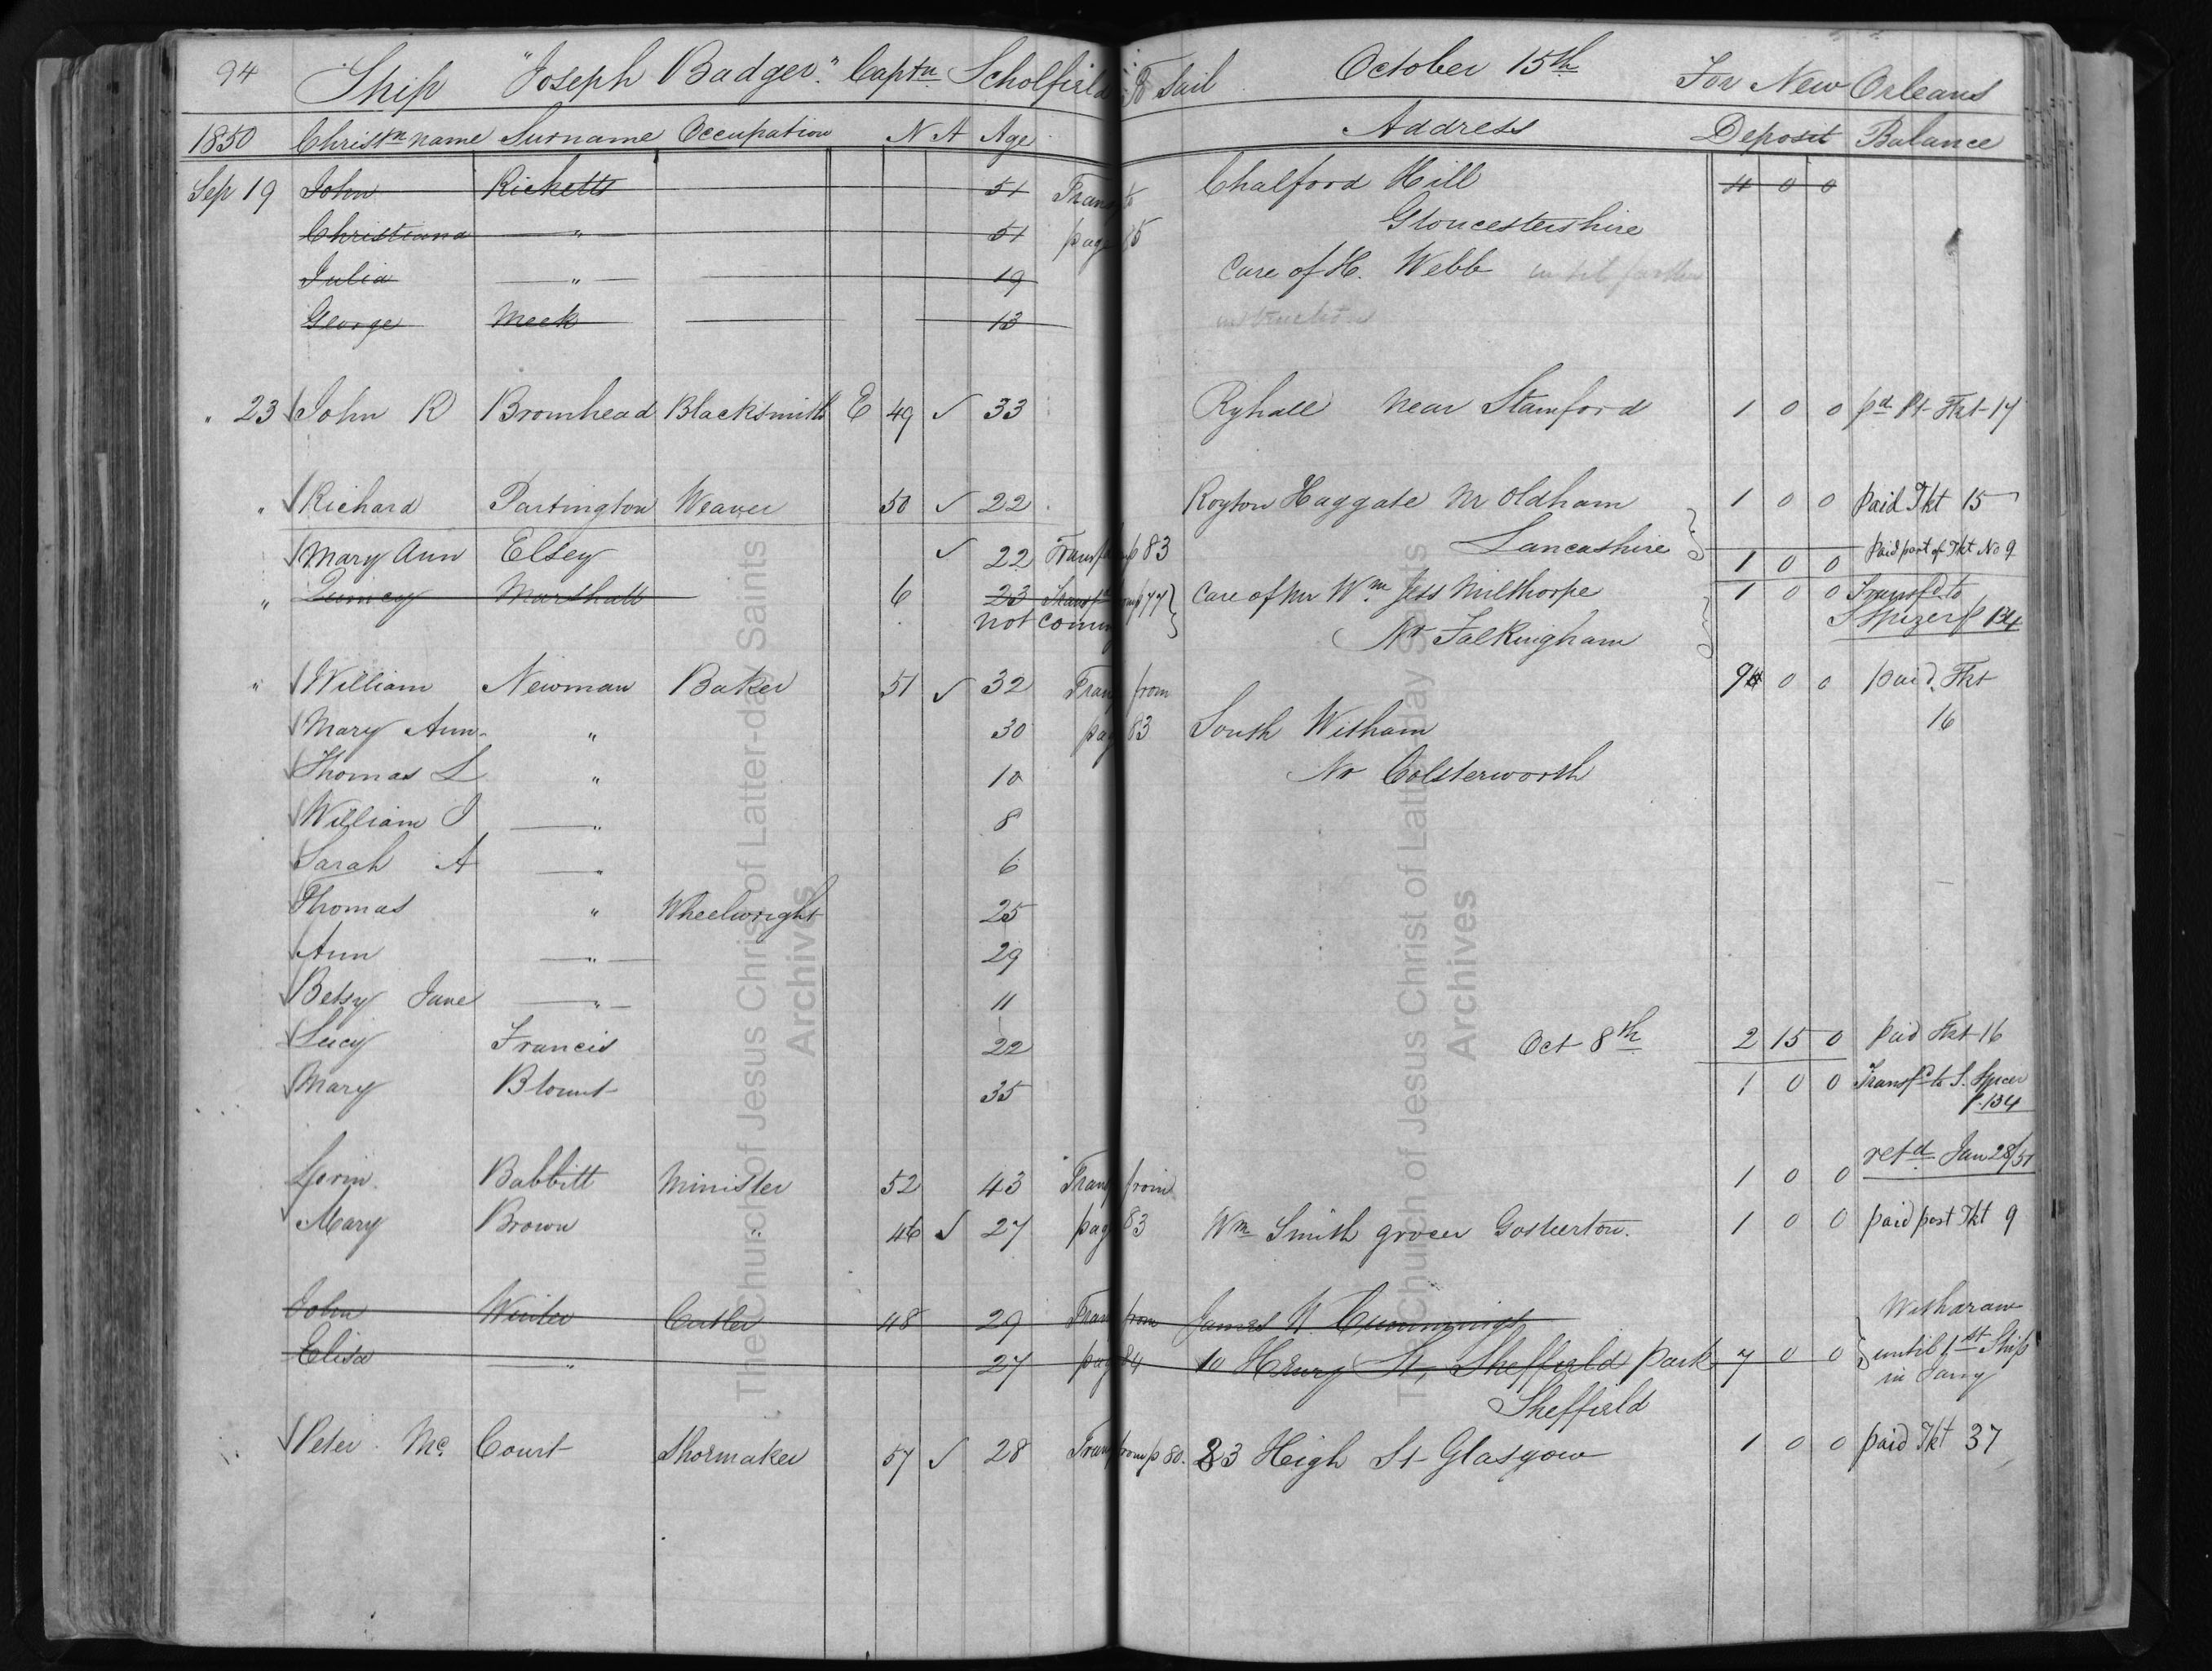 94 Ship "Joseph Badger." Captn. Scholfield To Sail October 15th For New Orleans
1850 Christn name Surname Occupation N A Age Address Deposit Balance
Sep 19 John Ricketts 51 Transf to Chalford Hill 4 0 0
Christiana " 51 page 85 Gloucestershire
Julia " 19 Care of H. Webb until further
George Meek 13 instruction
" 23 John R Bromhead Blacksmith E 49 ✓ 33 Ryhall near Stamford 1 0 0 pd Pt Tkt 17
" Richard Partington Weaver 50 ✓ 22 Royton Haggate Nr Oldham 1 0 0 paid Tkt 15
Mary Ann Elsey ✓ 22 Transf from p 83 Lancashire 1 0 0 Paid part of Tkt No 9
" Quincey Marshall 6 23 Transfd from p 77 Care of Mr Wm. Jess Milthorpe 1 0 0 Transfd to
not coming Nr Falkingham S Spicer p 134
" William Newman Baker 51 ✓ 32 Tran from 9 0 0 paid. Tkt
Mary Ann " 30 pag 83 South Witham 16
Thomas L " 10 Nr Colsterworth
William J " 8
Sarah A " 6
Thomas " Wheelwright 25
Ann " 29
Betsy Jane " 11
Lucy Francis 22 Oct 8th 2 15 0 paid Tkt 16
Mary Blount 35 1 0 0 Transfd to S. Spicer
p. 134
Lorin Babbitt Minister 52 43 Tran from 1 0 0 retd. Jan 28/51
Mary Brown " 46 ✓ 27 pag 83 Wm Smith grocer Gosberton. 1 0 0 paid part Tkt 9
John Winter Cutler 48 29 Tran from James W. Cummings Withdrawn
Elisa " 27 pag 84 10 Henry St, Sheffield Park 7 0 0 until 1st Ship
Sheffield in Jany
Peter Mc. Court Shormaker 57 ✓ 28 Tran from p 80. 83 High St Glasgow 1 0 0 paid Tkt 37
The Church of Jesus Christ of Latter-day Saints
Archives
The Church of Jesus Christ of Latter-day Saints
Archives